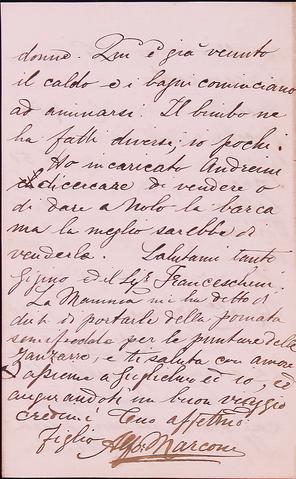 donne. Qui è già venuto
il caldo e i bagni cominciano
ad animarsi. Il bimbo ne
ha fatti diversi, io pochi.
Ho incaricato Andreini
di cercare di vendere o
di dare a nolo la barca
ma la meglio sarebbe di
venderla. Salutami tanto
Gigino ed il Sigr Franceschini.
La Mamma mi ha detto di
dirti di portarle della pomata
per le punture delle
Zanzare, e ti saluta con amore
assieme a Guglielmo ed io, ed
augurandoti un buon viaggio
credimi Tuo affetmo
figlio Alfo Marconi